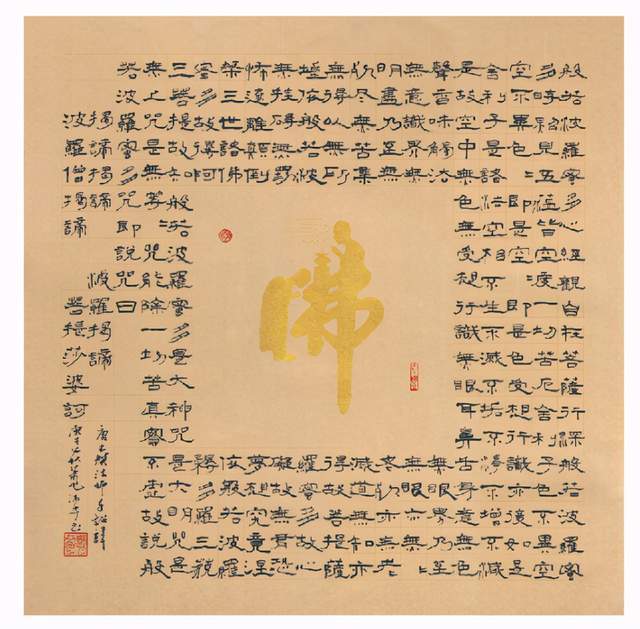 般若波羅蜜多心經觀自在菩薩行深般若波羅蜜
多時照見五蘊皆空度一切苦厄舍利子色不異空
空不異色色即是空空即是色受想行識亦復如是
舍利子是諸法空相不生不滅不垢不淨不增不減
是故空中無色無受想行識無眼耳鼻舌身意無色
聲香味觸法無眼界乃至
無意識界無無明亦無無
明盡乃至無老死亦無老
死盡無苦集滅道無智亦
無得以無所得故菩提薩
埵依般若波羅蜜多故心
無掛礙無掛礙故無有恐
怖遠離顛倒夢想究竟涅
槃三世諸佛依般若波羅
蜜多故得阿耨多羅三藐
三菩提故知般若波羅蜜多是大神咒是大明咒是
無上咒是無等等咒能除一切苦真實不虛故說般
若波羅蜜多咒即說咒曰
揭諦揭諦 波羅揭諦
波羅僧揭諦 菩提莎婆訶
佛